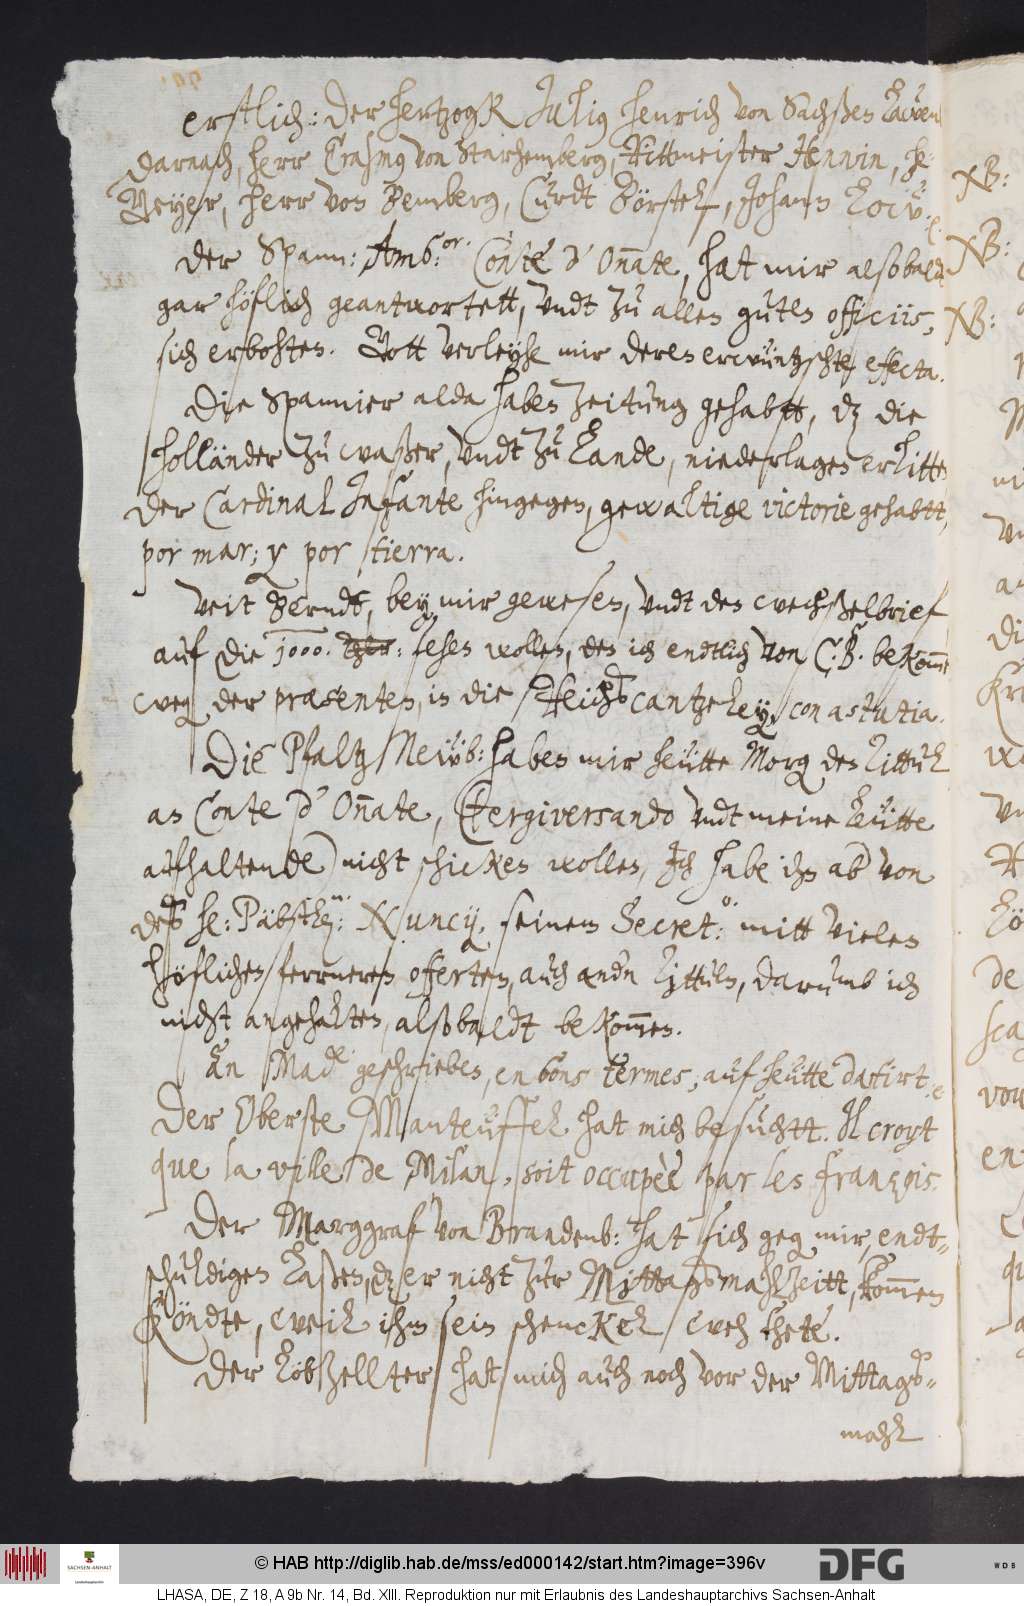 erstlich: der hertzogk Julius henrich von Sachßen Lawen
darnach, herr Erasmus von Starhemberg, Rittmeister Hennin, he:
Geyer, herr von Bemberg, Curdt Börstel, Johann Löw.
der Spann: Amb:or. Conte d' Onnate, hat mir alsobaldt
gar höflich geantwortett, vndt zu allen guten officiis,
sich erbohten. Gott verleyhe mir deren erwüntzschte effecta.
Die Spannier alda haben zeitung gehabtt, dz die
Holländer zu waßer, vndt zu Lande, niederlagen erlitten
der Cardinal Infante hingegen, gewaltige victorie gehabtt,
por mar; y por tierra.
Veit Berndt, bey mir gewesen, vndt den wechßelbrief
auf die 1000. Thlr: sehen wollen, den ich endtlich von C. B. bekomme
weg der præsenten, in die Reichscantzeley, con astutia.
Die Pfaltz Neüb: haben mir heütte Morg den tittul
an Conte d' Onnate, (tergiversando vndt meine Leütte
aufhaltende) nicht schicken wollen, Ich habe ihn ab von
deß he: Päbstlen: Nuncij, seinem Secreto: mitt vielen
höflichen ferrneren offerten, auch andn tittuln, darumb ich
nicht angehalten, alsobaldt bekommen.
An Made geschrieben, en bons termes; auf heütte datirt.
Der Oberste Manteuffel hat mich besuchtt. Il croyt
que la ville de Milan, soit occupèe par les françois.
Der Marggraf von Brandenb: hat sich geg mir, endt=
schuldigen laßen, dz er nicht zur Mittagsmahlzeitt, kommen
köndte, weil ihm sein schenckel weh thete.
Der Löbzellter hat mich auch noch vor der Mittags=
mahl
NB:
NB:
NB:
© HAB http://diglib.hab.de/mss/ed000142/start.htm?image=396v
SACHSEN-ANHALT
Landeshauptarchiv
DFG
WDB
LHASA, DE, Z 18, A 9b Nr. 14, Bd. XIII. Reproduktion nur mit Erlaubnis des Landeshauptarchivs Sachsen-Anhalt